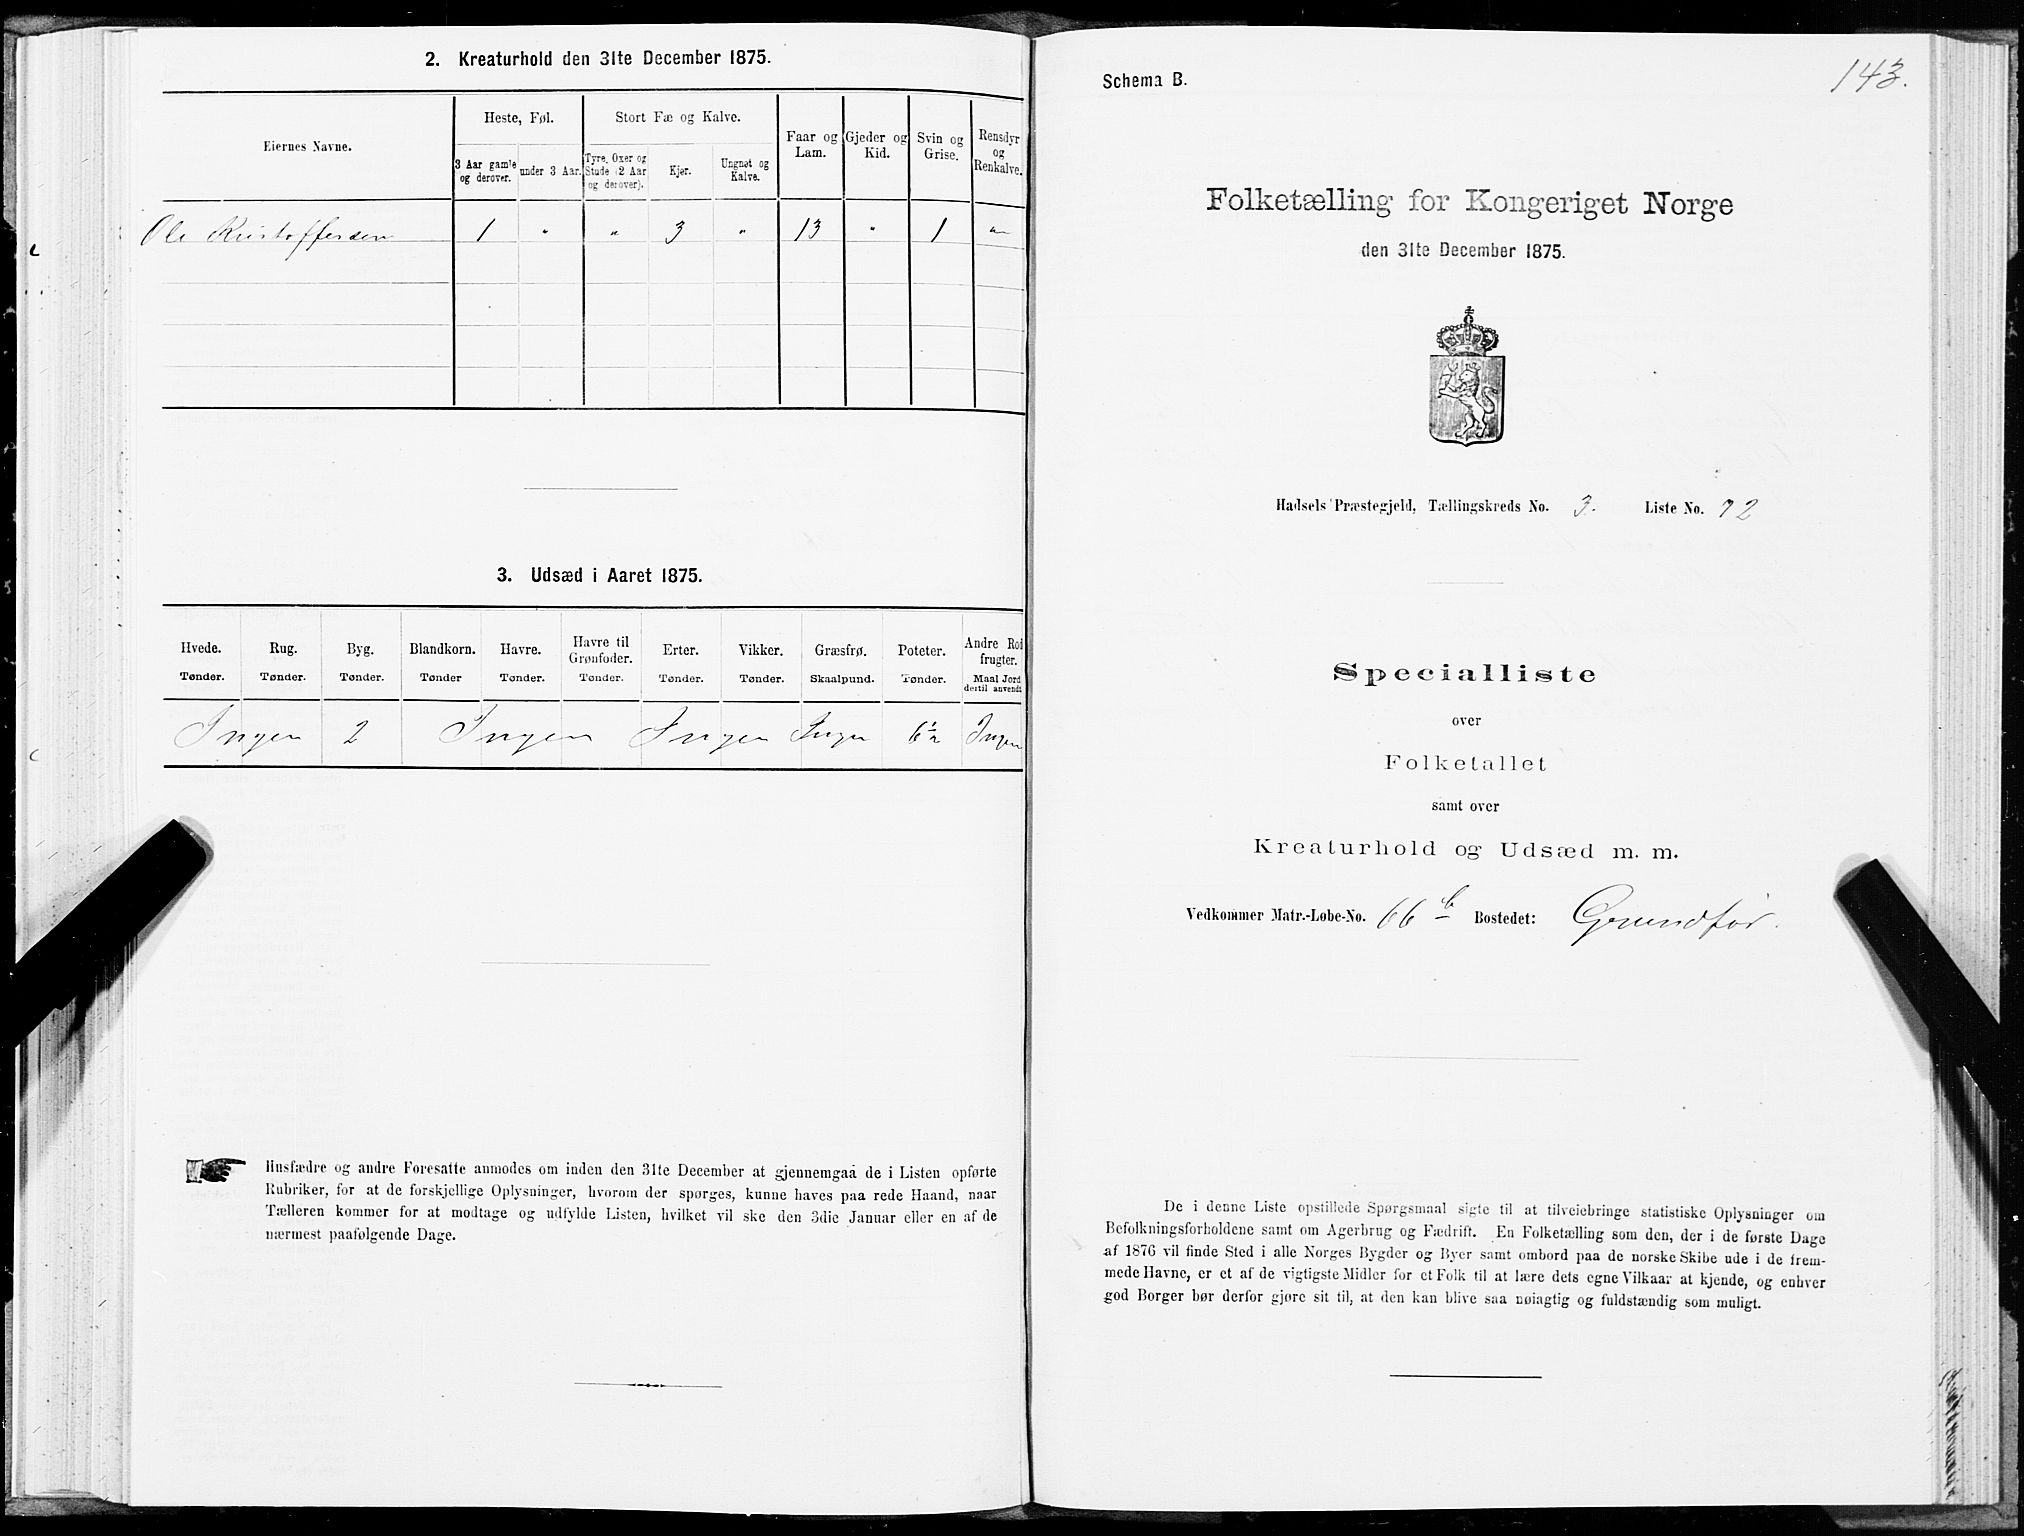 2. Kreaturhold den 31te December 1875.
Eiernes Navne.
Heste, Føl.
Stort Fæ og Kalve.
Faar og Lam.
Gjeder og Kid.
Svin og Grise.
Rensdyr og Renkalve.
3 Aar gamle og derover.
under 3 Aar.
Tyre, Oxer og Stude (2 Aar og derover).
Kjør.
Ungnøt og Kalve.
Ole Kristoffersen 1 " " 3 " 13 " 1 "
3. Udsæd i Aaret 1875.
Hvede. Rug. Byg. Blandkorn. Havre. Havre til Grønfoder. Erter. Vikker. Græsfrø. Poteter. Andre Rodfrugter.
Tønder. Tønder. Tønder. Tønder Tønder. Tønder. Tønder. Tønder. Skaalpund. Tønder. Maal Jord dertil anvendt
Ingen 2 Ingen Ingen Ingen 6½ Ingen
Husfædre og andre Foresatte anmodes om inden den 31te December at gjennemgaa de i Listen opførte
Rubriker, for at de forskjellige Oplysninger, hvorom der spørges, kunne haves paa rede Haand, naar
Tælleren kommer for at modtage og udfylde Listen, hvilket vil ske den 3die Januar eller en af de
nærmest paafølgende Dage.
143.
Schema B.
Folketælling for Kongeriget Norge
den 31te December 1875.
Hadsels Præstegjeld, Tællingskreds No. 3. Liste No. 72
Specialliste
over
Folketallet
samt over
Kreaturhold og Udsæd m. m.
Vedkommer Matr.-Løbe-No. 66 b Bostedet: Grundfør.
De i denne Liste opstillede Spørgsmaal sigte til at tilveiebringe statistiske Oplysninger om
Befolkningsforholdene samt om Agerbrug og Fædrift. En Folketælling som den, der i de første Dage
af 1876 vil finde Sted i alle Norges Bygder og Byer samt ombord paa de norske Skibe ude i de frem-
mede Havne, er et af de vigtigste Midler for et Folk til at lære dets egne Vilkaar at kjende, og enhver
god Borger bør derfor gjøre sit til, at den kan blive saa nøiagtig og fuldstændig som muligt.